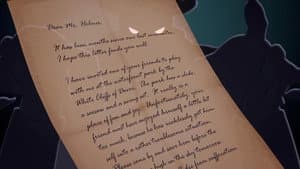 Dear Mr. Holmes,
It has been months since our last encounter.
I hope this letter finds you well.
I have invited one of your friends to play
with me at the waterfront park by the
White Cliffs of Dover. The park has a slide,
a seesaw and a swing set. It really is a
place of fun and joy. Unfortunately, your
friend must have enjoyed himself a little bit
too much, because he has recklessly got him
self into a rather troublesome situation.
Please come by and save him before the
high on the day tomorrow
die from suffocation